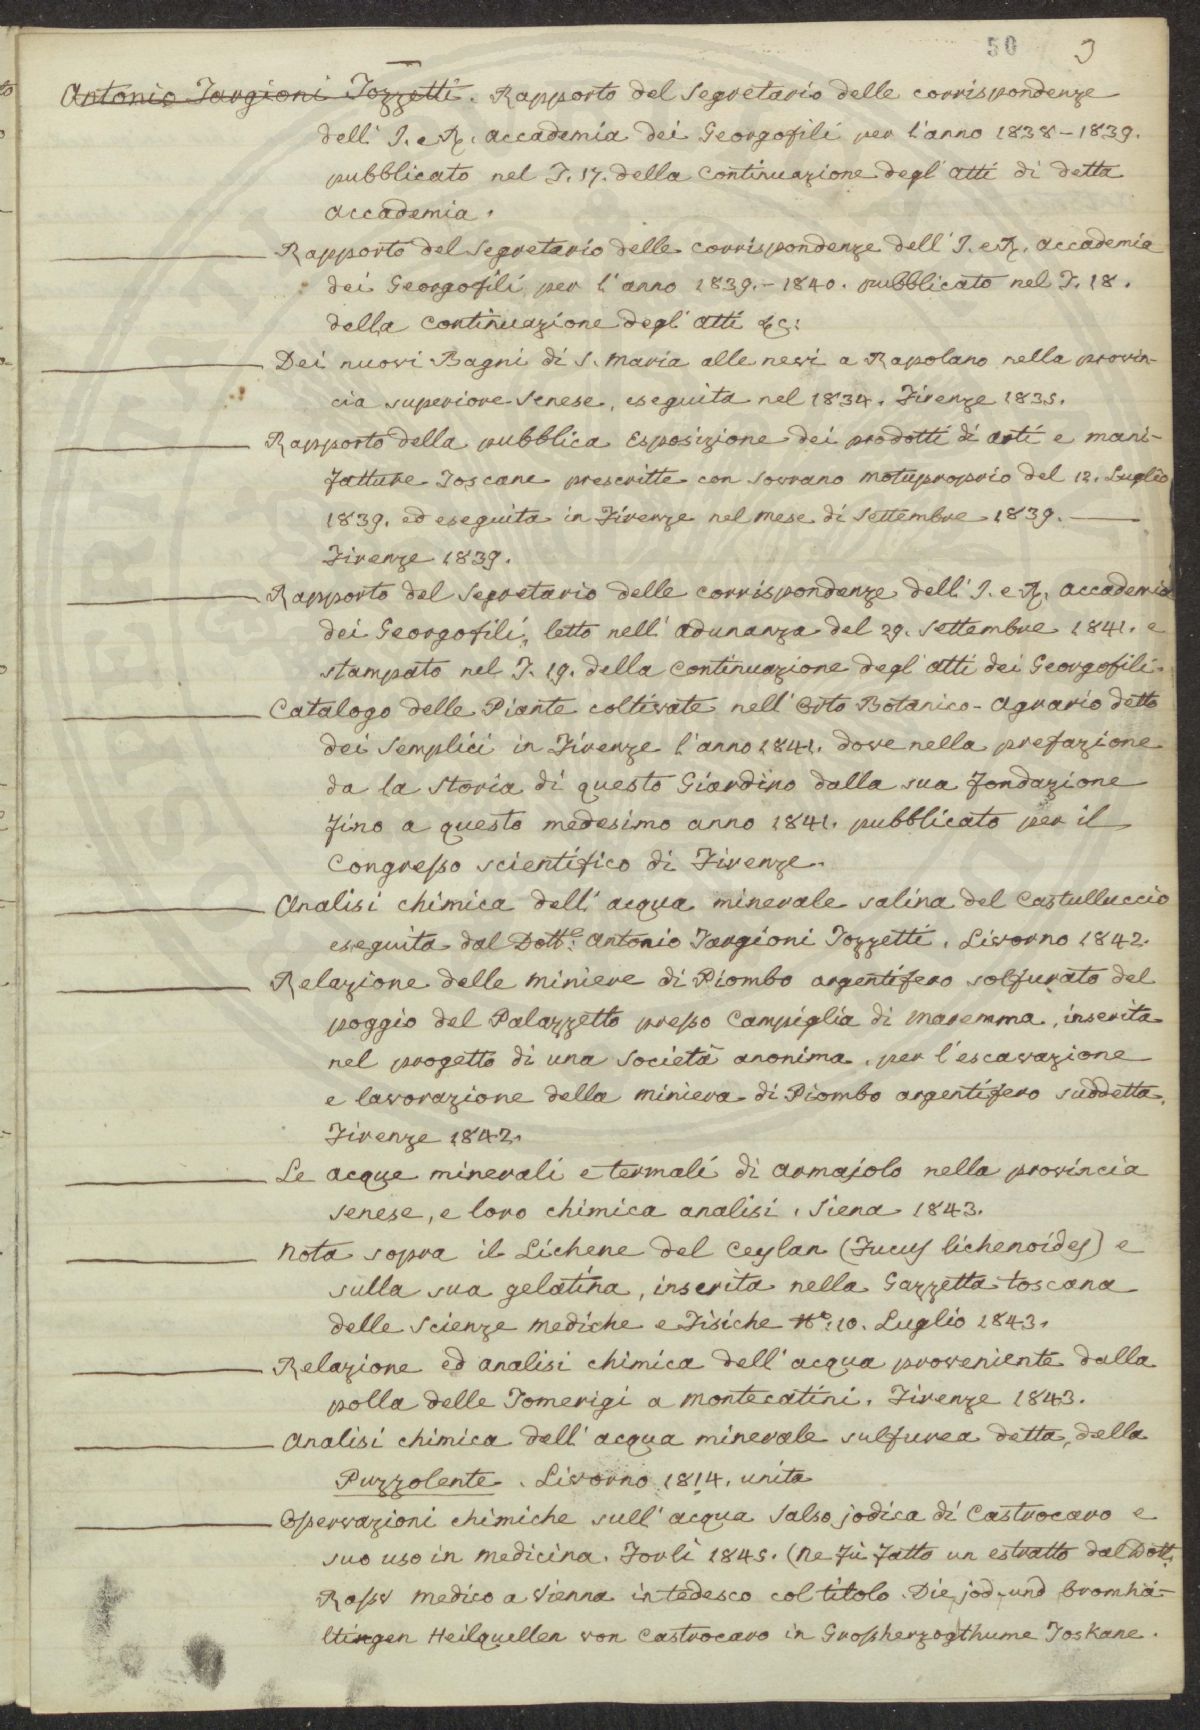 50 3
Antonio Targioni Tozzetti. Rapporto del Segretario delle corrispondenze
dell' I. e R. accademia dei Georgofili per l'anno 1838-1839.
pubblicato nel T. 17. della continuazione degl' atti di detta
accademia.
Rapporto del Segretario delle corrispondenze dell' I. e R. accademia
dei Georgofili per l'anno 1839.-1840. pubblicato nel T. 18.
della continuazione degl' atti &c:
Dei nuovi Bagni di S. Maria alle nevi a Rapolano nella provin-
cia superiore Senese, eseguita nel 1834. Firenze 1835.
Rapporto della pubblica Esposizione dei prodotti di arti e mani-
fatture Toscane prescritte con Sovrano motuproprio del 12. Luglio
1839. ed eseguita in Firenze nel mese di Settembre 1839.
Firenze 1839.
Rapporto del Segretario delle corrispondenze dell' I. e R. accademia
dei Georgofili, letto nell' adunanza del 29. Settembre 1841. e
stampato nel T. 19. della continuazione degl' atti dei Georgofili.
Catalogo delle Piante coltivate nell' Orto Botanico-Agrario detto
dei Semplici in Firenze l'anno 1841. dove nella prefazione
da la Storia di questo Giardino dalla sua fondazione
fino a questo medesimo anno 1841. pubblicato per il
Congresso scientifico di Firenze.
Analisi chimica dell' acqua minerale salina del Castulluccio
eseguita dal Dott.e Antonio Targioni Tozzetti. Livorno 1842.
Relazione delle miniere di Piombo argentifero solfurato del
poggio del Palazzetto presso Campiglia di Maremma, inserita
nel progetto di una Società anonima, per l'escavazione
e lavorazione della miniera di Piombo argentifero suddetta.
Firenze 1842.
Le acque minerali e termali di Armajolo nella provincia
senese, e loro chimica analisi. Siena 1843.
Nota sopra il Lichene del Ceylan (Fucus lichenoides) e
sulla sua gelatina, inserita nella Gazzetta toscana
delle Scienze mediche e Fisiche N.o 10. Luglio 1843.
Relazione ed analisi chimica dell' acqua proveniente dalla
polla delle Tomerigi a Montecatini. Firenze 1843.
Analisi chimica dell' acqua minerale sulfurea detta, della
Puzzolente. Livorno 1814. unita
Osservazioni chimiche sull' acqua Salso jodica di Castrocaro e
suo uso in medicina. Forlì 1845. (Ne fù fatto un estratto dal Dott.
medico a Vienna in tedesco col titolo. Die jod-und bromhä-
ltingen Heilquellen von Castrocaro in Großherzogthume Toskane.